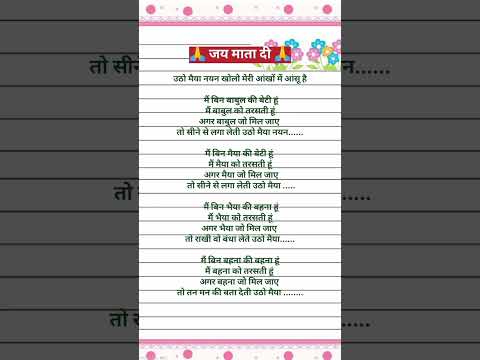 🙏 जय माता दी 🙏
उठो मैया नयन खोलो मेरी आंखों में आंसू है
मैं बिन बाबुल की बेटी हूं
मैं बाबुल को तरसती हूं
अगर बाबुल जो मिल जाए
तो सीने से लगा लेती उठो मैया नयन......
मैं बिन मैया की बेटी हूं
मैं मैया को तरसती हूं
अगर मैया जो मिल जाए
तो सीने से लगा लेती उठो मैया .....
मैं बिन भैया की बहना हूं
मैं भैया को तरसती हूं
अगर भैया जो मिल जाए
तो राखी वो बंधा लेते उठो मैया......
मैं बिन बहना की बहना हूं
मैं बहना को तरसती हूं
अगर बहना जो मिल जाए
तो तन मन की बता देती उठो मैया ........